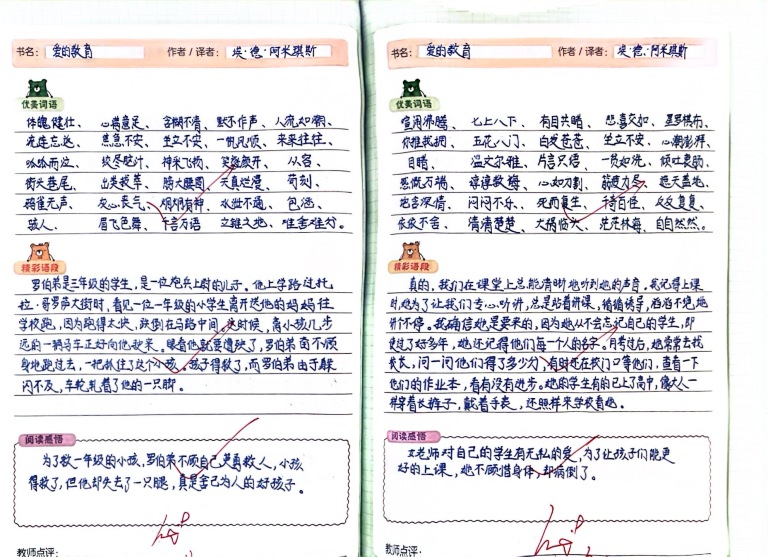 书名：爱的教育 作者/译者：埃·德·阿米琪斯
优美词语
体魄健壮、心满意足、含糊不清、默不作声、人流如潮、
流连忘返、焦急不安、坐立不安、一帆风顺、来来往往、
呱呱而泣、绞尽脑汁、神采飞扬、笑逐颜开、从容、
街头巷尾、出类拔萃、膀大腰圆、天真烂漫、苛刻、
鸦雀无声、灰心丧气、炯炯有神、水泄不通、包涵、
骇人、眉飞色舞、千言万语、立锥之地、唯舍难分。
精彩语段
罗伯弟是三年级的学生，是一位炮兵上尉的儿子。他上学路过托
拉·哥罗萨大街时，看见一位一年级的小学生离开送他的妈妈往
学校跑，因为跑得太快，跌倒在马路中间，这时候，离小孩几步
远的一辆马车正好向他驶来。眼看他就要遭殃了，罗伯弟奋不顾
身地跑过去，一把抓住了这个小孩。孩子得救了，而罗伯弟由于躲
闪不及，车轮轧着了他的一只脚。
阅读感悟
为了救一年级的小孩，罗伯弟不顾自己更勇救人，小孩
得救了，但他却失去了一只腿，真是舍己为人的好孩子。
教师点评：
书名：爱的教育 作者/译者：埃·德·阿米琪斯
优美词语
喧闹沸腾、七上八下、有目共睹、悲喜交加、星罗棋布、
你推我拥、五花八门、白发苍苍、坐立不安、心潮澎湃、
目睹、温文尔雅、片言只语、一贫如洗、倾吐衷肠、
感慨万端、谆谆教诲、心如刀割、筋疲力尽、遮天盖地、
饱含深情、闷闷不乐、死而复生、千奇百怪、反反复复、
依依不舍、清清楚楚、大祸临头、茫茫林海、自自然然。
精彩语段
真的，我们在课堂上总能清晰地听到她的声音。我记得上课
时，她为了让我们专心听讲，总是站着讲课，循循诱导，滔滔不绝地
讲个不停。我确信她是爱我的，因为她从不会忘记自己的学生，即
使过了好多年，她还记得他们每一个人的名字。月考过后，她常常去找
校长，问一问他们得了多少分，有时还在校门口等他们，查看一下
他们的作业本，看有没有进步。她的学生有的已上了高中，像大人一
样穿着长裤子，戴着手表，还照样来学校看她。
阅读感悟
女老师对自己的学生有无私的爱，为了让孩子们能更
好的上课，她不顾惜身体，却病倒了。
教师点评：